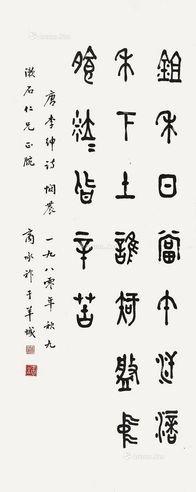 鉏禾日當午汗滴
禾下土誰知盤中
飧粒〻皆辛苦
唐李紳詩憫農 一九八零年秋九
漱石仁兄正腕 商承祚于羊城